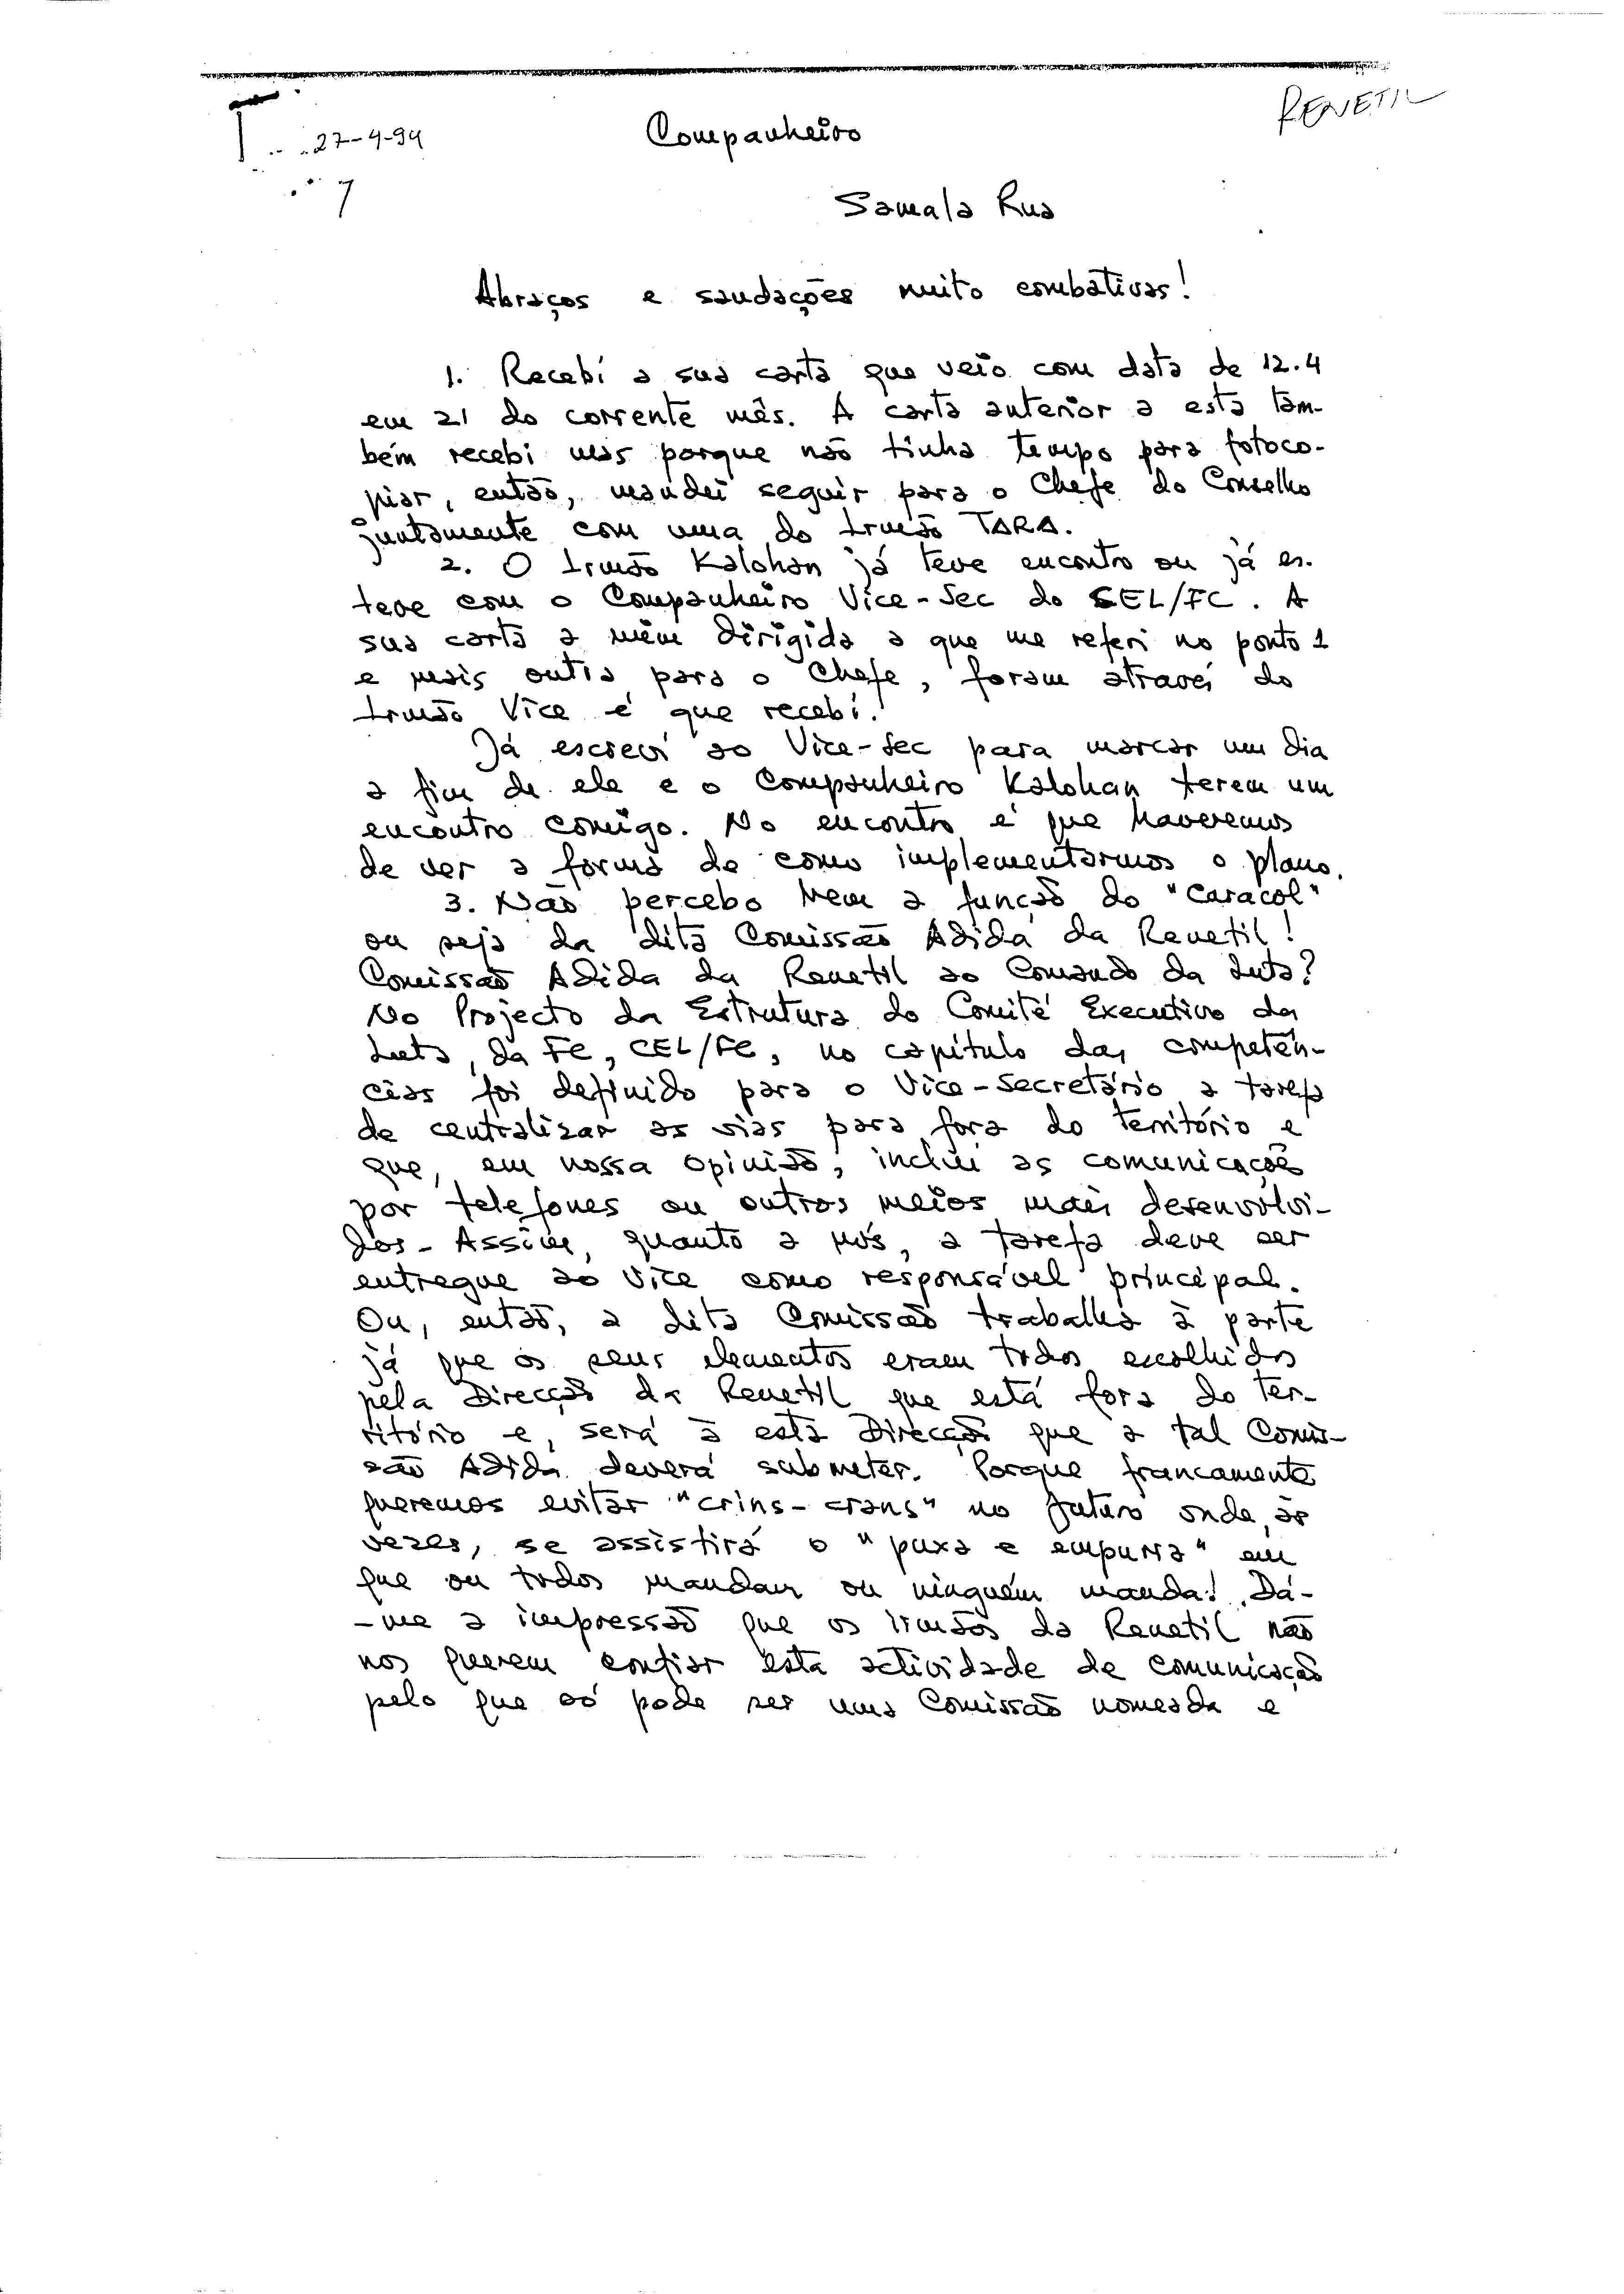 RENETIL
27-4-94
Companheiro
7
Samala Rua
Abraços e saudações muito combativas!
1. Recebi a sua carta que veio com data de 12.4
em 21 do corrente mês. A carta anterior a esta tam-
bém recebi mas porque não tinha tempo para fotoco-
piar, então, mandei seguir para o Chefe do Conselho
juntamente com uma do Irmão TARA.
2. O Irmão Kalohan já teve encontro ou já es-
teve com o Companheiro Vice-Sec do CEL/FC. A
sua carta a mim dirigida a que me referi no ponto 1
e mais outra para o Chefe, foram através do
Irmão Vice é que recebi.
Já escrevi ao Vice-Sec para marcar um dia
a fim de ele e o Companheiro Kalohan terem um
encontro comigo. No encontro é que haveremos
de ver a forma de como implementarmos o plano.
3. Não percebo bem a função do "Caracol"
ou seja da dita Comissão Adida da Renetil!
Comissão Adida da Renetil ao Comando da Luta?
No Projecto da Estrutura do Comité Executivo da
Luta, da FC, CEL/FC, no capítulo das competên-
cias foi definido para o Vice-Secretário a tarefa
de centralizar as vias para fora do território e
que, em nossa opinião, inclui as comunicações
por telefones ou outros meios mais desenvolvi-
dos. Assim, quanto a nós, a tarefa deve ser
entregue ao Vice como responsável principal.
Ou, então, a dita Comissão trabalha à parte
já que os seus elementos eram todos escolhidos
pela Direcção da Renetil que está fora do ter-
ritório e, será à esta Direcção que a tal Comis-
são Adida deverá submeter. Porque francamente
queremos evitar "crins-crans" no futuro onde, às
vezes, se assistirá o "puxa e empurra" em
que ou todos mandam ou ninguém manda! Dá-
-me a impressão que os irmãos da Renetil não
nos querem confiar esta actividade de comunicação
pelo que só pode ser uma Comissão nomeada e